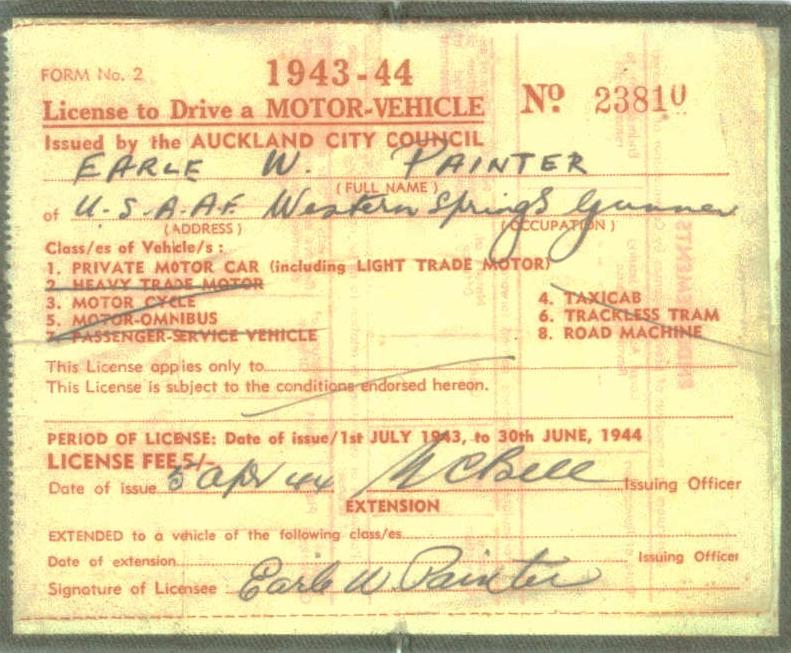 FORM No. 2
1943-44
License to Drive a MOTOR-VEHICLE
No 23810
Issued by the AUCKLAND CITY COUNCIL
EARLE W. PAINTER
(FULL NAME)
of U.S.A.AF. Western Springs Gunner
(ADDRESS) (OCCUPATION)
Class/es of Vehicle/s :
1. PRIVATE MOTOR CAR (including LIGHT TRADE MOTOR)
2. HEAVY TRADE MOTOR
3. MOTOR CYCLE 4. TAXICAB
5. MOTOR-OMNIBUS 6. TRACKLESS TRAM
7. PASSENGER-SERVICE VEHICLE 8. ROAD MACHINE
This License applies only to
This License is subject to the conditions endorsed hereon.
PERIOD OF LICENSE: Date of issue/1st JULY 1943, to 30th JUNE, 1944
LICENSE FEE 5/-
Date of issue 5 Apr 44 Issuing Officer
EXTENSION
EXTENDED to a vehicle of the following class/es
Date of extension Issuing Officer
Signature of Licensee Earle W Painter